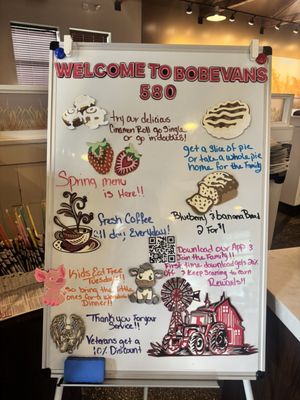 WELCOME TO BOBEVANS
580
try our delicious
Cinnamon Roll go Single
or go in doubles!
get a Slice of pie
or take a whole pie
home for the family
Spring menu
is Here!!
Blueberry & banana Bread
2 For $1
Fresh Coffee
all day, Everyday!
Download our App &
Join the Family!!
First time download gets
& Keep Earning to earn
Rewards!!
Kids Eat Free
Tuesday's!!
So bring the little
ones for a
Dinner!!
Thank you For your
Service!!
Veterans get a
10% Discount